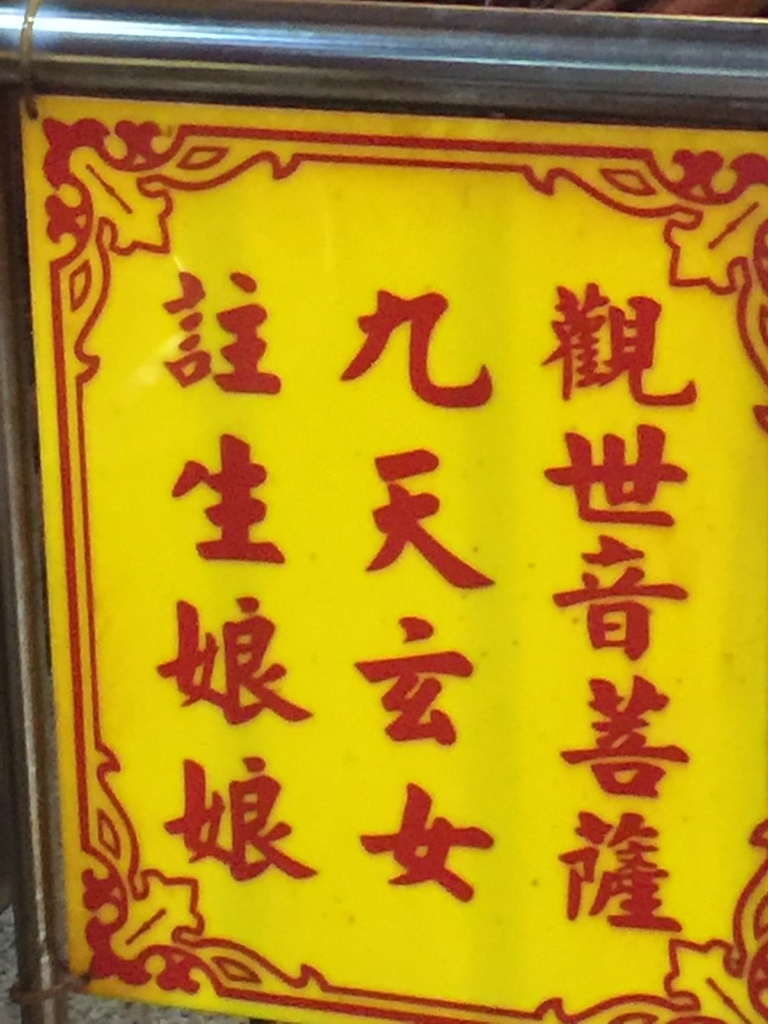 觀世音菩薩
九天玄女
註生娘娘